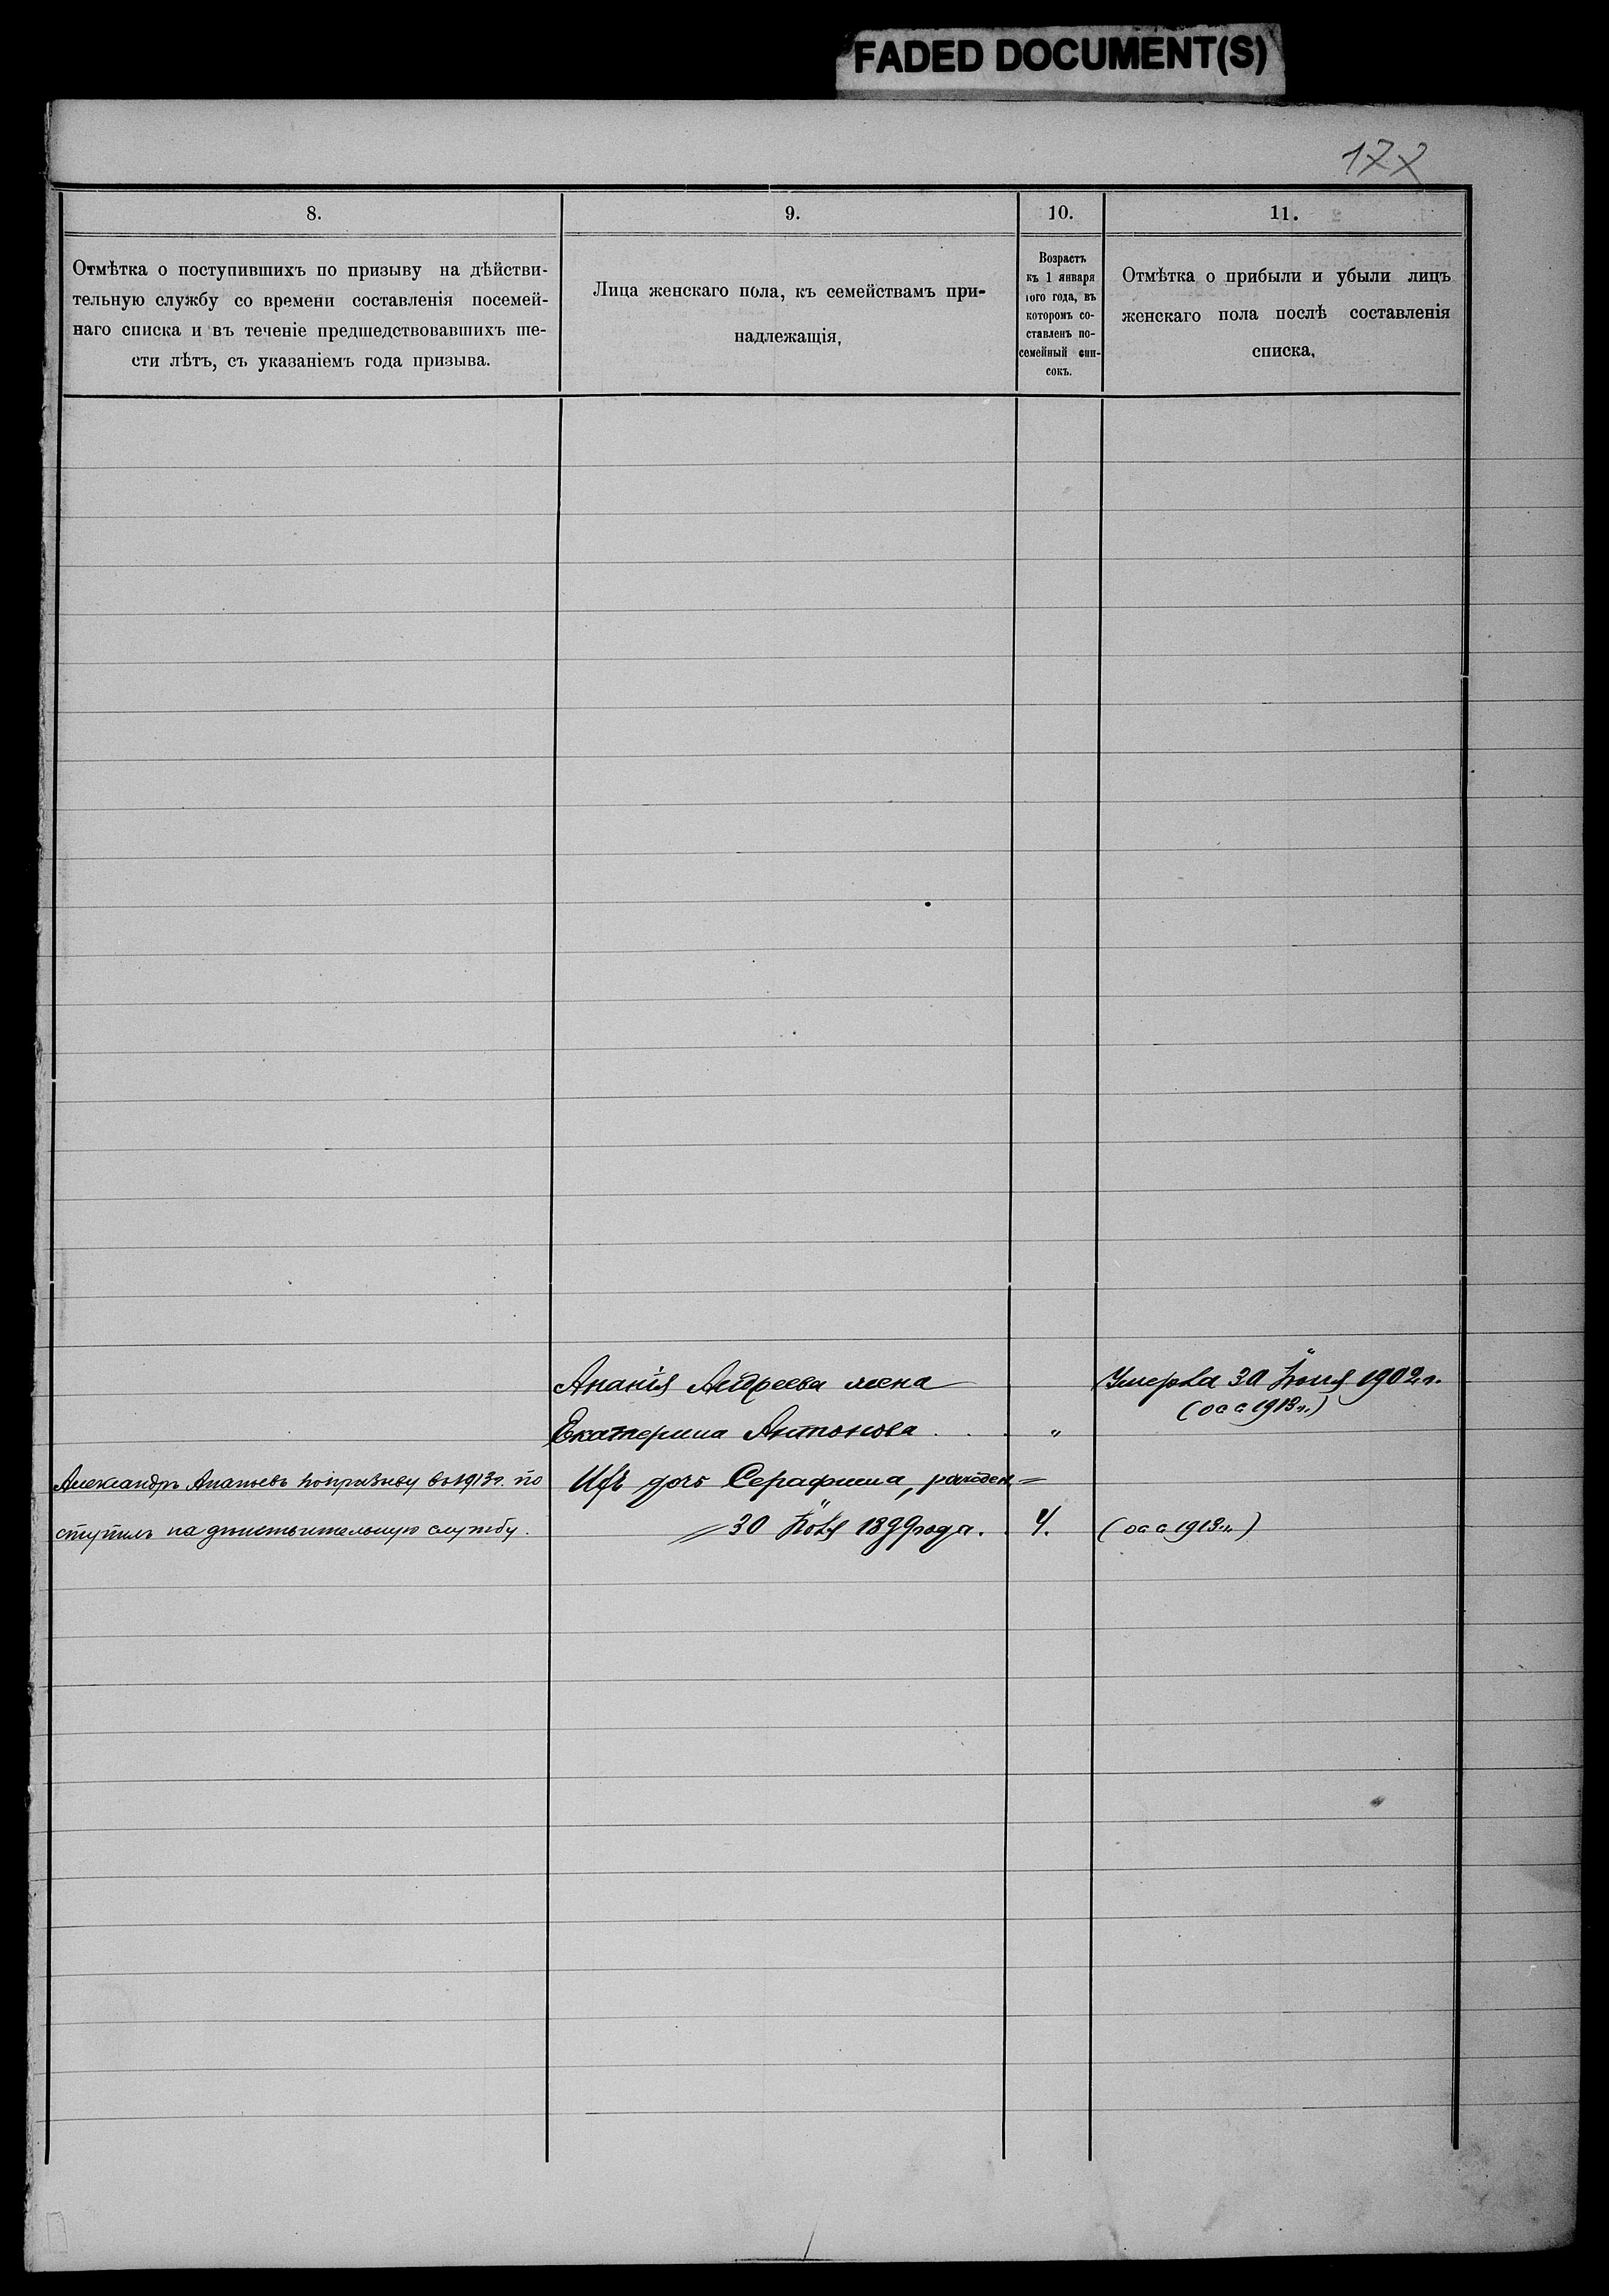 FADED DOCUMENT(S)
177
8.
Отмѣтка о поступившихъ по призыву на дѣйстви-
тельную службу со времени составленія посемей-
наго списка и въ теченіе предшедствовавшихъ ше-
сти лѣтъ, съ указаніемъ года призыва.
9.
Лица женскаго пола, къ семействамъ при-
надлежащія,
10.
Возрастъ
къ 1 января
того года, въ
которомъ со-
ставленъ по-
семейный спи-
сокъ.
11.
Отмѣтка о прибыли и убыли лицъ
женскаго пола послѣ составленія
списка,
Ананія Андреева жена
Умерла 30 Іюня 1902 г.
(1913 г.)
Екатерина Антонова . . . "
Александръ Ананьевъ по призыву въ 1913 г. по
Ихъ дочь Серафима, рожден=
ступилъ на дѣйствительную службу.
=30 Іюля 1899 года. 4.
(1913 г.)